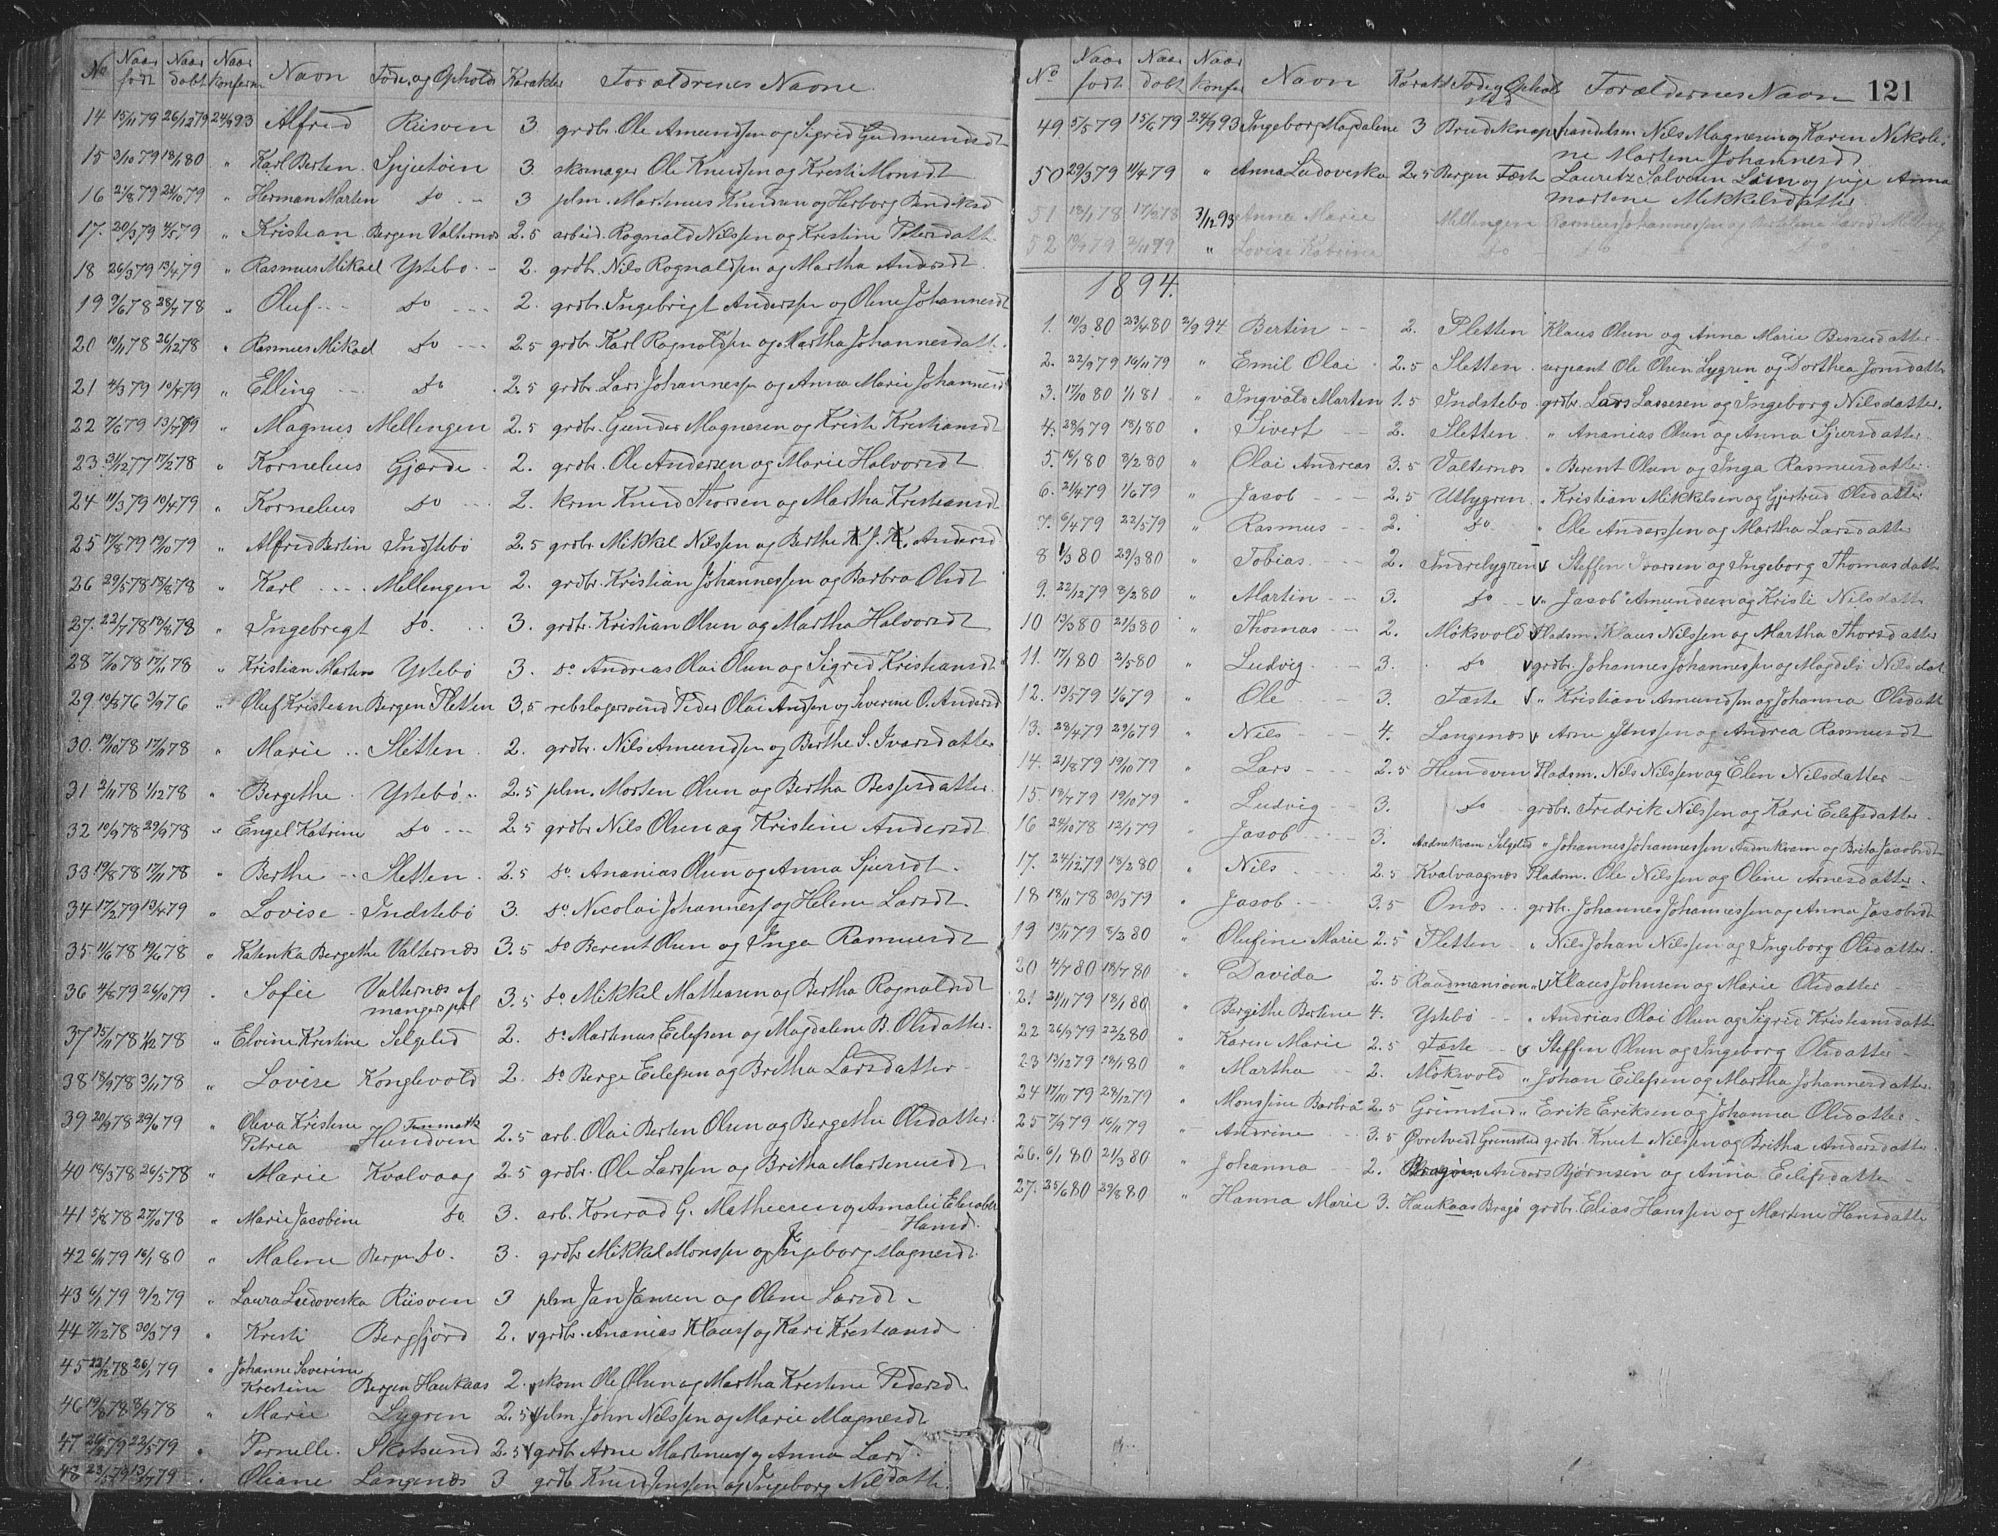 No Naar født Naar døbt Naar konferm Navn Føde og Opholds Karakter Forældrenes Navne
14 15/11 79 26/12 79 24/9 93 Alfred Riisven 3 grdbr. Ole Amundsen og Sigrid Gudmundsdt
15 3/10 79 18/1 80 " Karl Berten 3. skomager Ole Knudsen og Kristi Monsdt
16 21/8 79 24/10 79 " Herman Marten do - 3 plm. Martenus Knudsen og Herborg
17. 20/3 79 4/5 79 " Kristian Bergen Valternæs 2.5 arbeid. Rognald Nilssen og Kristine Petersdatt
18 26/3 79 13/4 79 " Rasmus Mikael Ystebø - 2. grdbr. Nils Rognaldsen og Martha Andersdt
19 9/6 78 28/7 78 " Oluf - - do - - 2. grdbr. Ingebrigt Anderssen og Oline Johannesdt
20 10/11 78 26/12 78 Rasmus Mikael do - - - 2.5 grdbr. Karl Rognaldsen og Martha Johannesdatt.
21 4/3 79 10/4 79 " Elling - do 2.5 grdbr. Lars Johannessen og Anna Marie Johannesd
22 7/6 79 13/7 79 " Magnus Mellengen 2.5 grdbr. Gunder Magnesen og Kriste Kristiansdt
23 31/12 77 17/2 78 " Kornelius Gjerde 2. grdbr. Ole Andersen og Marie Halvorsdt
24 11/3 79 10/4 79 " Kornelius do - - - 2. krm Knud Thorsen og Martha Kristiansd
25 17/8 79 19/10 79 " Alfred Bertin Indstebø 2.5 grdbr. Mikkel Nilssen og Berthe J. Andersd
26 29/5 78 18/8 78 " Karl - - - Mellengen 2. grdbr. Kristian Johannessen og Barbro Olsdt
27. 22/7 78 18/8 78 " Ingebrigt do. - - 3. grdbr. Kristian Olsen og Martha Halvorsdt
28 7/10 78 17/11 78 " Kristian Marten Ystebø 3. do Andreas Olai Olsen og Sigrid Kristiansdt
29 19/2 76 3/9 76 " Oluf Kristian Bergen Sletten 3,5 rebslagersvend Peder Olai Andsen og Severine O. Andersd
30. 19/10 78 17/11 78 " Marie - - Sletten - 2. grdbr. Nils Amundsen og Berthe S. Ivarsdatter
31 2/11 78 1/12 78 " Bergethe - Ystebø - - 2.5 plm. Morten Olsen og Bertha Bessesdatter.
32 10/9 78 29/9 78 " Engel Katrine do - - - 2.5 grdbr. Nils Olsen og Kristine Andersdt
33 19/8 78 17/11 78 Berthe - - Sletten - 2.5 do. Ananias Olsen og Anna Sjursdt -
34 17/2 79 13/4 79 " Lovise - Indstebø 3. do Nicolai Johannessf og Helene Larsdt -
35 11/6 78 19/6 78 " Katenka Bergethe Valternæs 3.5 do Berent Olsen og Inga Rasmusdt
36 4/8 79 26/10 79 . Sofie Valternæs af 3.5 do Mikkel Matheasen og Bertha Rognaldsdt
37 15/11 78 1/12 78 " Elvine Kristine Selgelid 2. do Martenus Eilefsen og Magdalene B. Olsdatter.
38 18/9 78 3/11 78 " Lovise Konglevold 2. do Berge Eilefsen og Britha Larsdatter -
39 20/1 78 29/6 79 " Oleva Kristine Petrea Hundven 2.5 arb. Olai Berten Olsen og Bergethe Olsdatter
40 18/3 78 26/5 78 " Marie Kvalvaag 2.5 grdbr. Ole Larssen og Britha Martenusdt
41 5/8 78 27/10 78 " Marie Jacobine do 3. arb. Konrad G. Matheesen og Amalie Elesabet
Hansd.
42 6/11 79 16/1 80 " Malene Bergen do. 3. grdbr Mikkel Monssen og Ingeborg Magnesdt
43 6/1 79 9/2 79 " Laura Ludoveska Riisven 3 plm Jan Jansen og Oline Larsdt -
44 7/12 78 30/3 79 " Kristi Bergfjord 2. v grdbr. Ananias Klausf og Kari Kristiansd
45 22/12 78 26/1 79 " Johanne Severine
Kristine Bergen Haukaas 2. v skom Ole Olsen og Martha Kristine Pedersdt
46 19/8 78 8/9 78 " Marie Lygren 2.5 v plm John Nilssen og Marie Magnesdt
47 26/4 79 22/5 79 " Pernelle. Skotsund 2.5 v grdbr Arne Martenusf og Anna Larsd
48 23/5 79 13/7 79 " Oliane Langenæs 3 grdbr Knud Jenssen og Ingeborg Nilsdatte.
No Naar født Naar døbt Naar konfer Navn Karakt Føde og Ophol sted Forældernes Navn 121
49 5/5 79 15/6 79 24/9 93 Ingeborg Magdalene 3 Brudeknap v handelsm Nils Magnesen og Karen Nikoli-
ne Martene Johannesdt
50 29/3 79 11/4 79 " Anna Ludoveska 2.5 Bergen Fæste Lauritz Salvesen Lien og pige Anna
Martene Mikkelsdatter
51 18/1 78 17/2 78 3/12 93 Anna Marie Mellengen Rasmus Johannessen og
52 19/7 79 2/11 79 " Lovise Katrine do do
1894.
1. 10/3 80 23/4 80 2/9 94 Bertin - - 2. Sletten Klaus Olsen og Anna Marie Bessesdatter -
2. 22/9 79 16/11 79 " Emil Olai - 2.5 Sletten . sergeant Ole Olsen Lygren og Dorthea Jonsdatte
3. 17/10 80 1/1 81 . " Ingvald Marten 1.5 Indstebø . grdbr. Lars Lassesen og Ingeborg Nilsdatter.
4. 28/9 79 18/1 80 " Sivert - - 2. Sletten . " Ananias Olsen og Anna Sjursdatter -
5. 16/1 80 8/2 80 " Olai Andreas 3.5 Valternæs " Berent Olsen og Inga Rasmusdatter -
6. 21/4 79 1/6 79 " Jacob - - - 2.5 Utlygren " Kristian Mikkelsen og Gjertrud Olsdatter
7. 6/4 79 22/5 79 " Rasmus - - 2. do - " Ole Anderssen og Martha Larsdatter
8 1/3 80 29/3 80 " Tobias - - - 2. Indrelygren v Steffen Ivarsen og Ingeborg Thomasdatt
9. 22/12 79 8/2 80 " Martin - - - 3. do - v " Jacob Amundsen og Kristi Nilsdatt
10 13/3 80 21/3 80 " Thomas - - 2. Møksvold Pladsm. Klaus Nilssen og Martha Thorsdatter
11. 17/1 80 2/5 80 " Ludvig - - - 3. do v grdbr. Johannes Johannessen og Magdeli Nilsdat
12. 13/5 79 1/6 79 " Ole 3. Fæste v " Kristian Amundsen og Johanna Olsdatt
13. 28/4 79 29/6 79 " Nils - - - 4. Langenæs v Arne Jenssen og Andrea Rasmusdt
14. 21/8 79 19/10 79 " Lars - - - 2.5 Hundven Pladsm. Nils Nilssen og Elen Nilsdatter -
15. 19/7 79 19/10 79 " Ludvig - - 3. do - grdbr. Fredrik Nilssen og Kari Eilefsdatter -
16 24/10 78 12/1 79 " Jacob - - - - 3. Aadnekvam Selgelid " Johannes Johannessen Aadnekvam og Brita Jacobsdt
17. 24/12 79 18/2 80 " Nils - - - 2.5 Kvalvaagnæs Pladsm. Ole Nilssen og Oline Arnesdatter.
18 18/11 78 30/3 79 " Jacob - - - 3.5 Onøs - - grdbr. Johannes Johannessen og Anna Jacobsdt
19 13/11 79 8/2 80 " Olufine Marie 2.5 Sletten " Nils Johan Nilssen og Ingeborg Olsdatter -
20 4/7 80 18/7 80 " Davida 2.5 Raadmansøen " v Klaus Johnsen og Marie Olsdatter -
21. 21/11 79 18/1 80 " Bergithe Bertine 4. Ystebø - - " Andrias Olai Olsen og Sigrid Kristiansdatte
22 26/9 79 22/2 80 " Karen Marie 2.5 Fæste - v Steffen Olsen og Ingeborg Olsdatter -
23 13/12 79 18/1 80 " Martha - - - 2. Møksvold " Johan Eilefsen og Martha Johannesdatter.
24 17/10 79 28/12 79 " Monssine Barbra 2.5 Grimstad " Erik Eriksen og Johanna Olsdatter -
25 7/9 79 16/11 79 " Andrine - - 3.5 Øvretvedt Gremstad grdbr. Knut Nilssen og Britha Andersdatter
26. 6/1 80 21/3 80 " Johanna - 2. Anders Bjørnsen og Anna Eilefsdatter -
27. 25/6 80 29/8 80 " Hanna Marie 3. Haukaas Bragø grdbr. Elias Hanssen og Martine Hansdatte